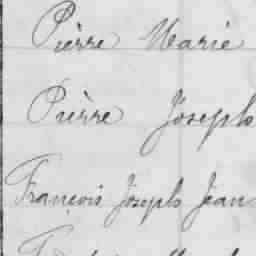 Pierre Marie
Pierre Joseph
François Joseph Jean